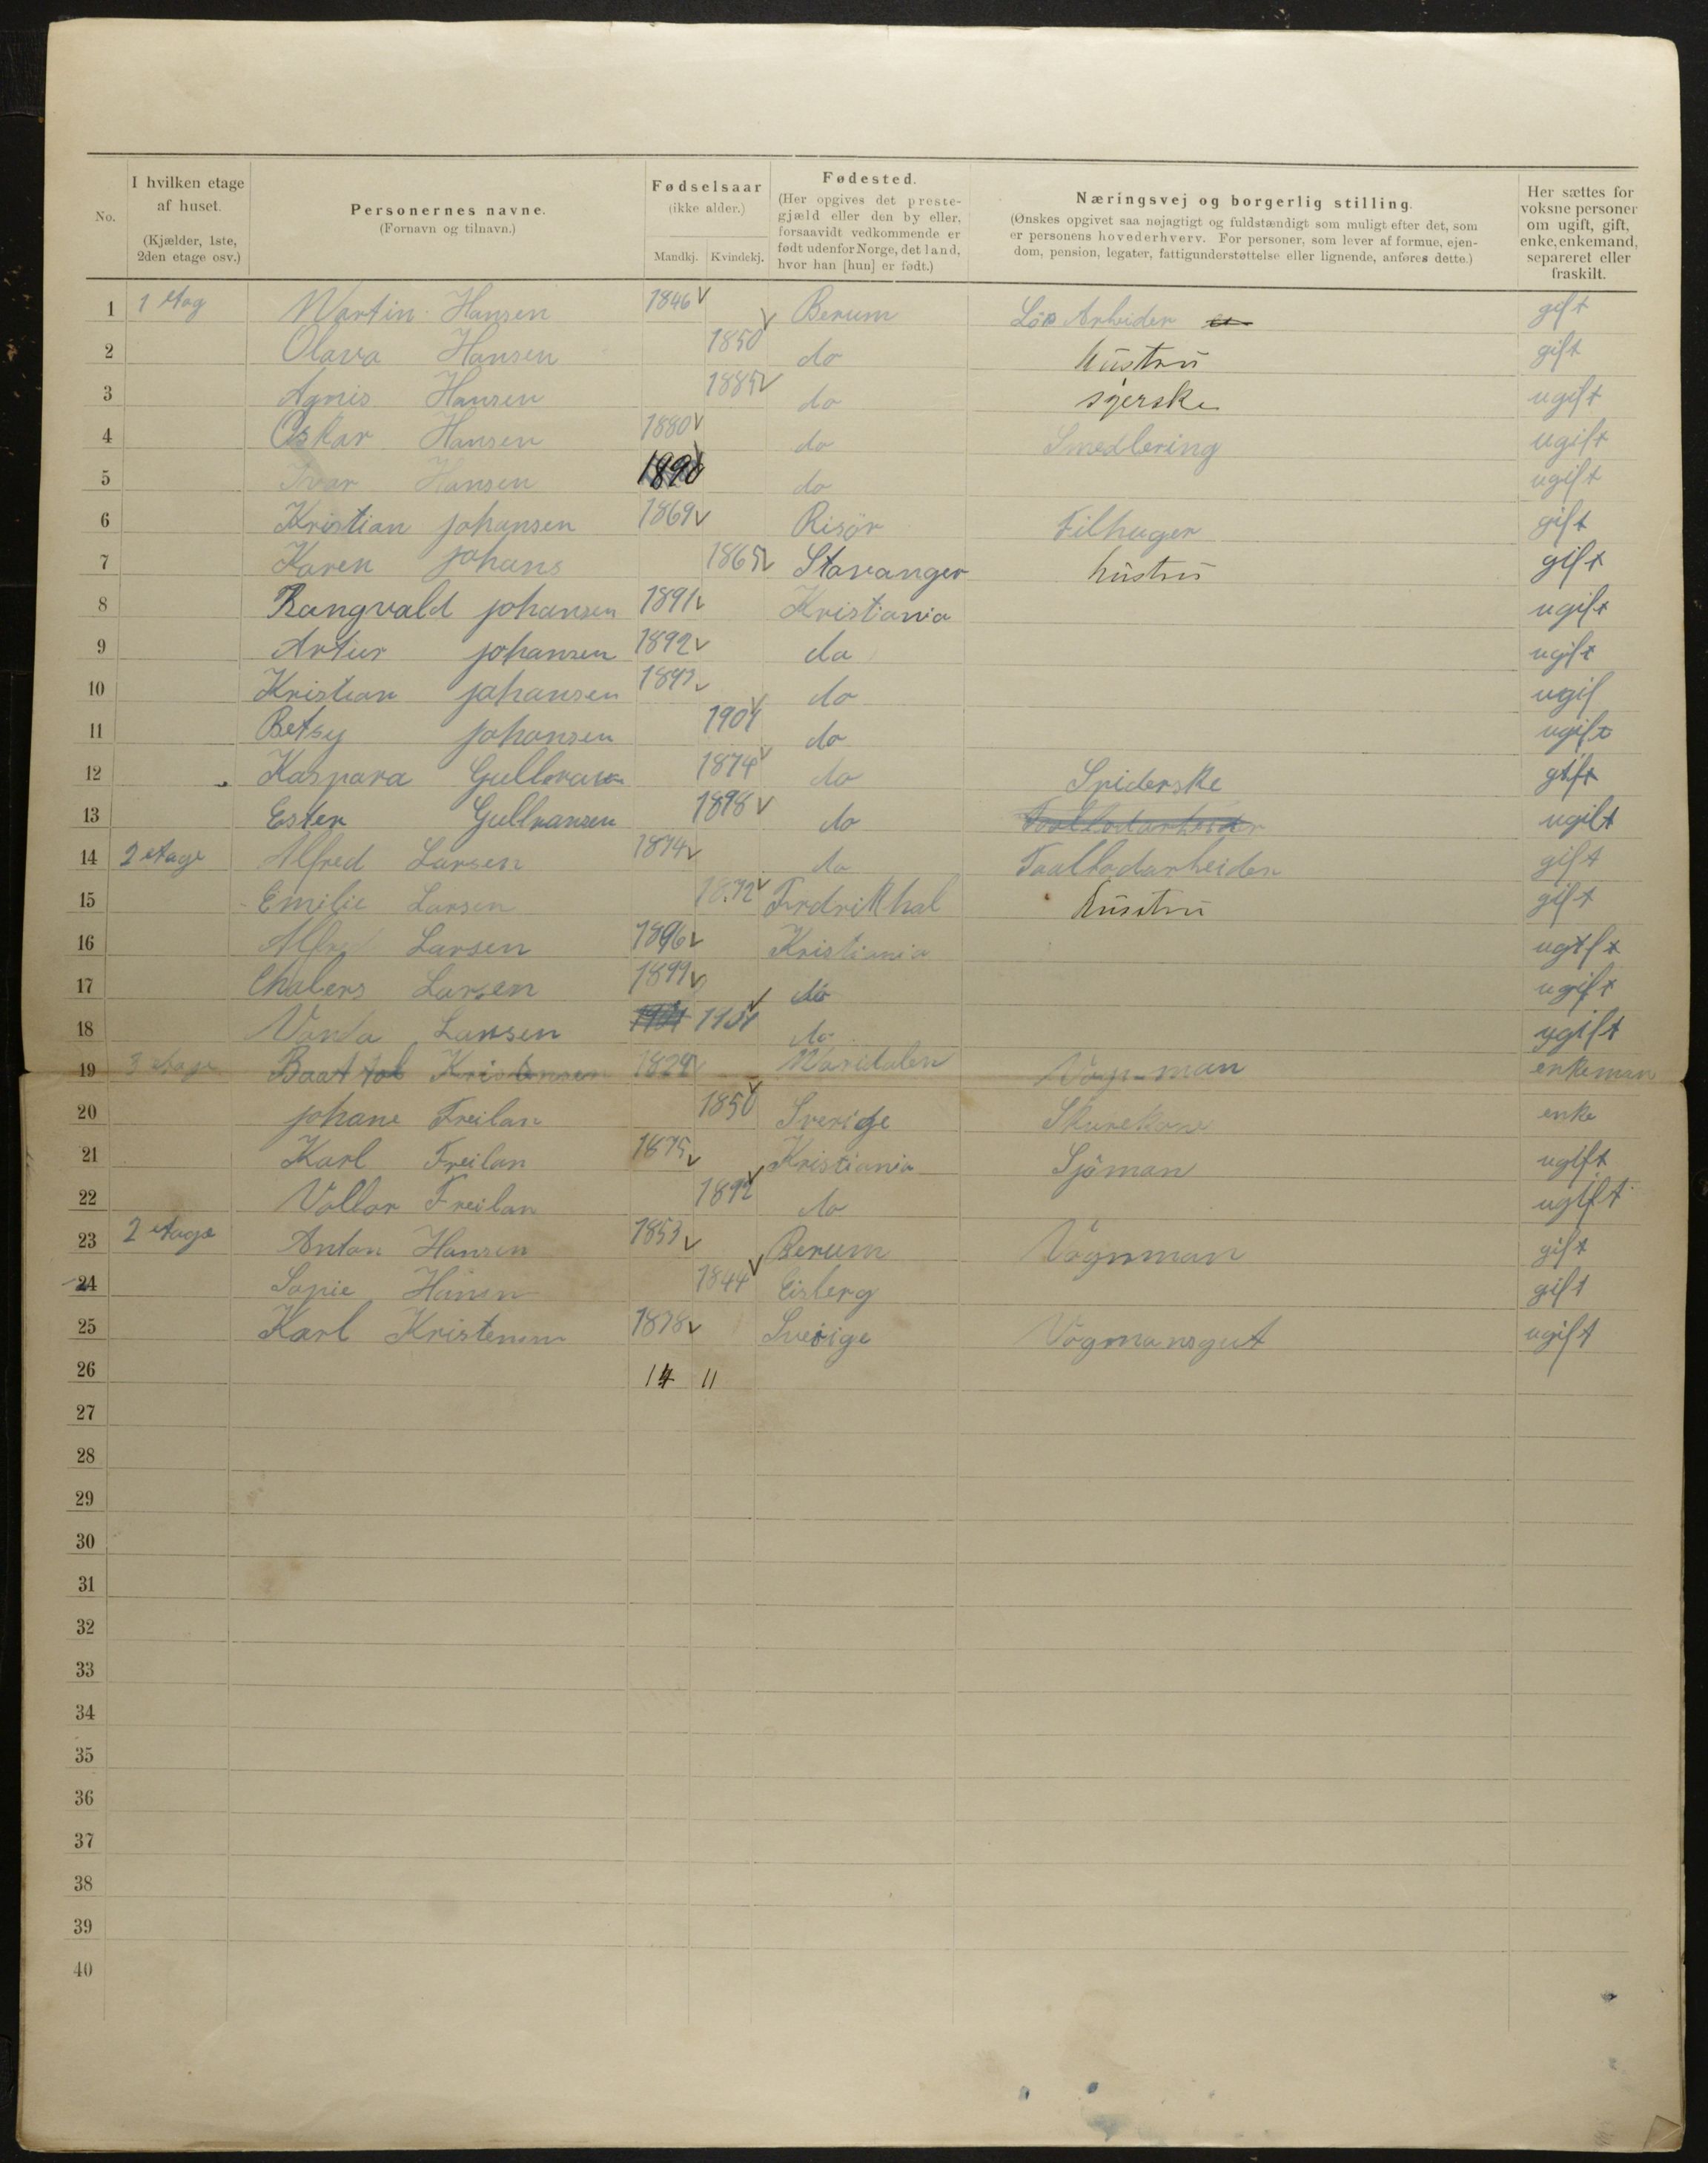 No.
I hvilken etage af huset. (Kjælder, 1ste, 2den etage osv.)
Personernes navne. (Fornavn og tilnavn.)
Fødselsaar (ikke alder.) Mandkj. Kvindekj.
Fødested. (Her opgives det prestegjæld eller den by eller, forsaavidt vedkommende er født udenfor Norge, det land, hvor han [hun] er født.)
Næringsvej og borgerlig stilling. (Ønskes opgivet saa nøjagtigt og fuldstændigt som muligt efter det, som er personens hovederhverv. For personer, som lever af formue, ejendom, pension, legater, fattigunderstøttelse eller lignende, anføres dette.)
Her sættes for voksne personer om ugift, gift, enke, enkemand, separeret eller fraskilt.
1 1 etag Martin Hansen 1846 Berum Lös Arbeider gift
2 Olava Hansen 1850 do hustru gift
3 Agnis Hansen 1885 do syerske ugift
4 Oskar Hansen 1880 do Smedlering ugift
5 Ivar Hansen 1890 do ugift
6 Kristian Johansen 1869 Risör Filhuger gift
7 Karen Johans 1865 Stavanger hustru gift
8 Rangvald Johansen 1891 Kristiania ugift
9 Artur Johansen 1892 do ugift
10 Kristian Johansen do ugif
11 Betsy Johansen 1904 do ugift
12 Kaspara 1874 do Spiderske gift
13 Ester Gullransen 1898 do ugift
14 2 etage Alfred Larsen 1874 do gift
15 Emilie Larsen 1872 Frdrikhal hustru gift
16 Alfred Larsen 1896 Kristiania ugift
17 Chalers Larsen 1899 do ugift
18 Vanda Larsen do ugift
19 3 etage Kristensen Maridalen Vogn-man enkeman
20 Johane Freilan 1850 Sverige Skurekone enke
21 Karl Freilan 1875 Kristiania Sjöman ugift
22 Vollar Freilan 1892 do ugift
23 2 etage Anton Hansen 1853 Berum Vognman gift
24 Sopie Hansen 1844 Eisberg gift
25 Karl Kristensen 1878 Sverige Vogmansgut ugift
26 14 11
27
28
29
30
31
32
33
34
35
36
37
38
39
40